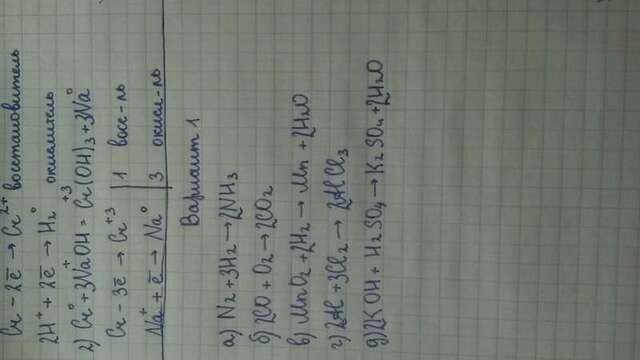 Cr - 2ē → Cr²⁺ восстановитель
2H⁺ + 2ē → H₂⁰ окислитель
2) Cr⁰ + 3Na⁺OH = Cr⁺³(OH)₃ + 3Na⁰
Cr - 3ē → Cr⁺³ | 1 восс-ль
Na⁺ + ē → Na⁰ | 3 окисл-ль
Вариант 1
а) N₂ + 3H₂ → 2NH₃
б) 2CO + O₂ → 2CO₂
в) MnO₂ + 2H₂ → Mn + 2H₂O
г) 2Al + 3Cl₂ → 2AlCl₃
д) 2KOH + H₂SO₄ → K₂SO₄ + 2H₂O